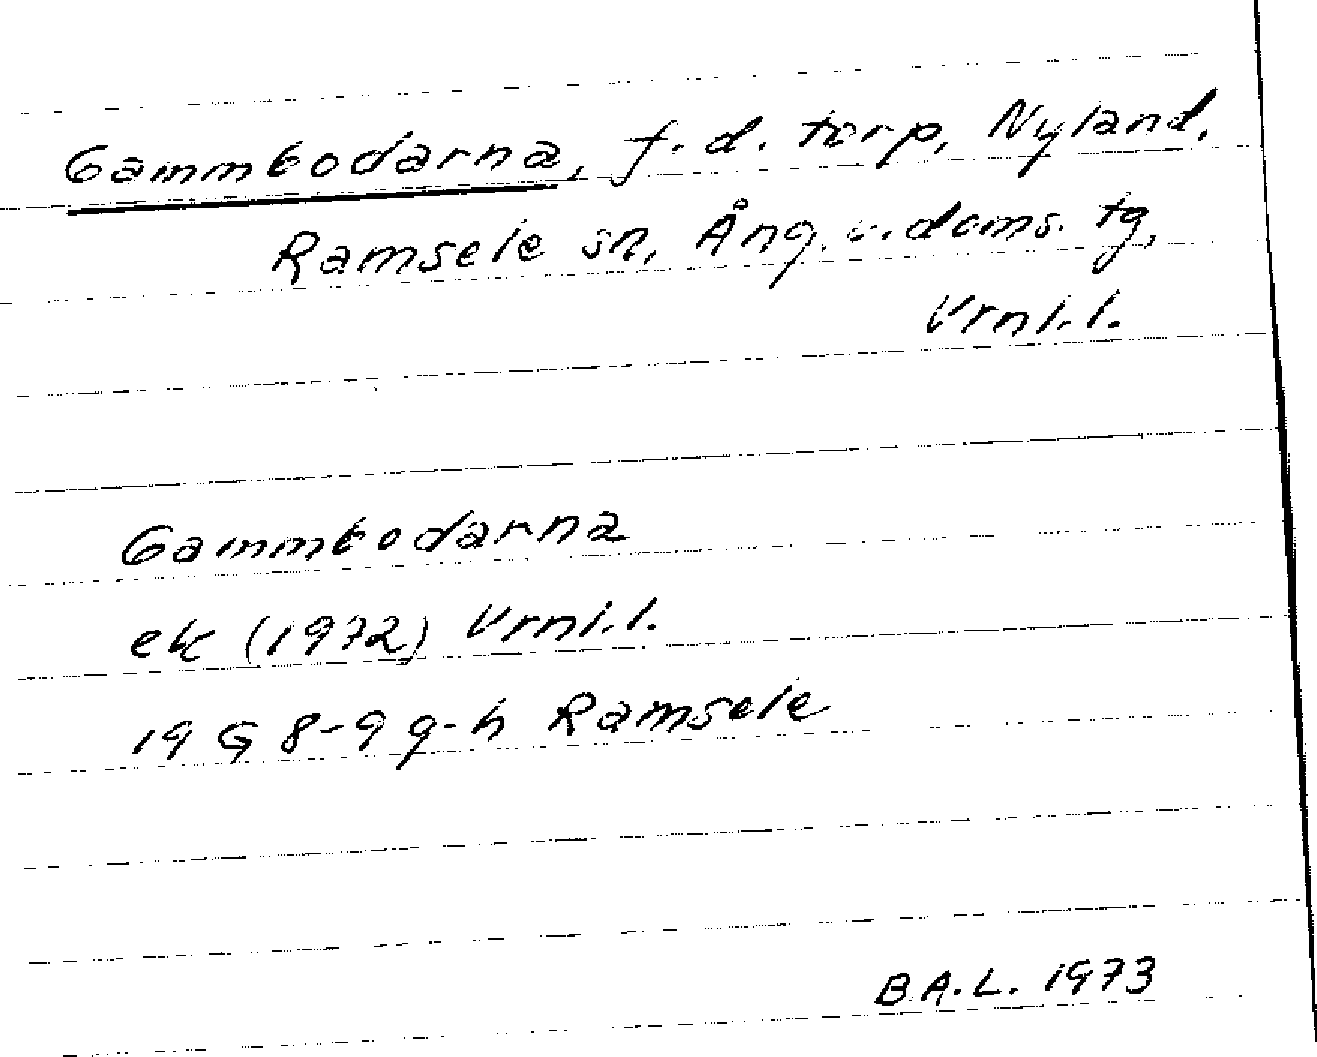 Gammbodarna, f.d. torp, Nyland,
Ramsele sn, Ång. v. doms. tg,
Vrnl.l.
Gammbodarna
ek (1972) Vrnl.l.
19 G 8-9 g-h Ramsele
B A.L. 1973